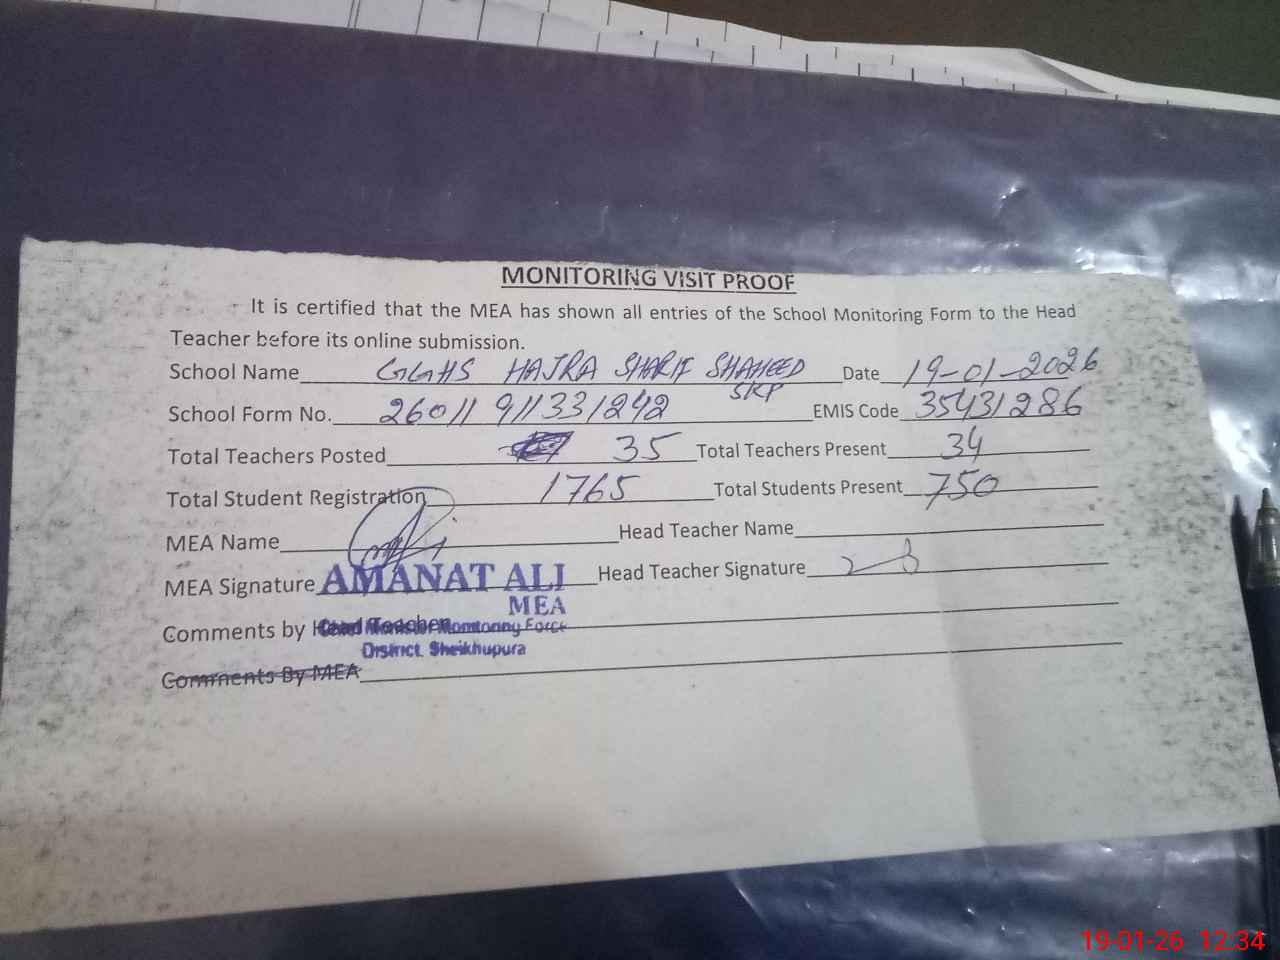 MONITORING VISIT PROOF
It is certified that the MEA has shown all entries of the School Monitoring Form to the Head
Teacher before its online submission.
School Name GGHS HAJRA SHARIF SHAHEED SKP Date 19-01-2026
School Form No. 26011911331242 EMIS Code 35431286
Total Teachers Posted 35 Total Teachers Present 34
Total Student Registration 1765 Total Students Present 750
MEA Name Head Teacher Name
MEA Signature AMANAT ALI Head Teacher Signature
MEA
Comments by Head Teacher Monitoring Force
District Sheikhupura
Comments By MEA
19-01-26 12:34